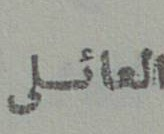 العائلى